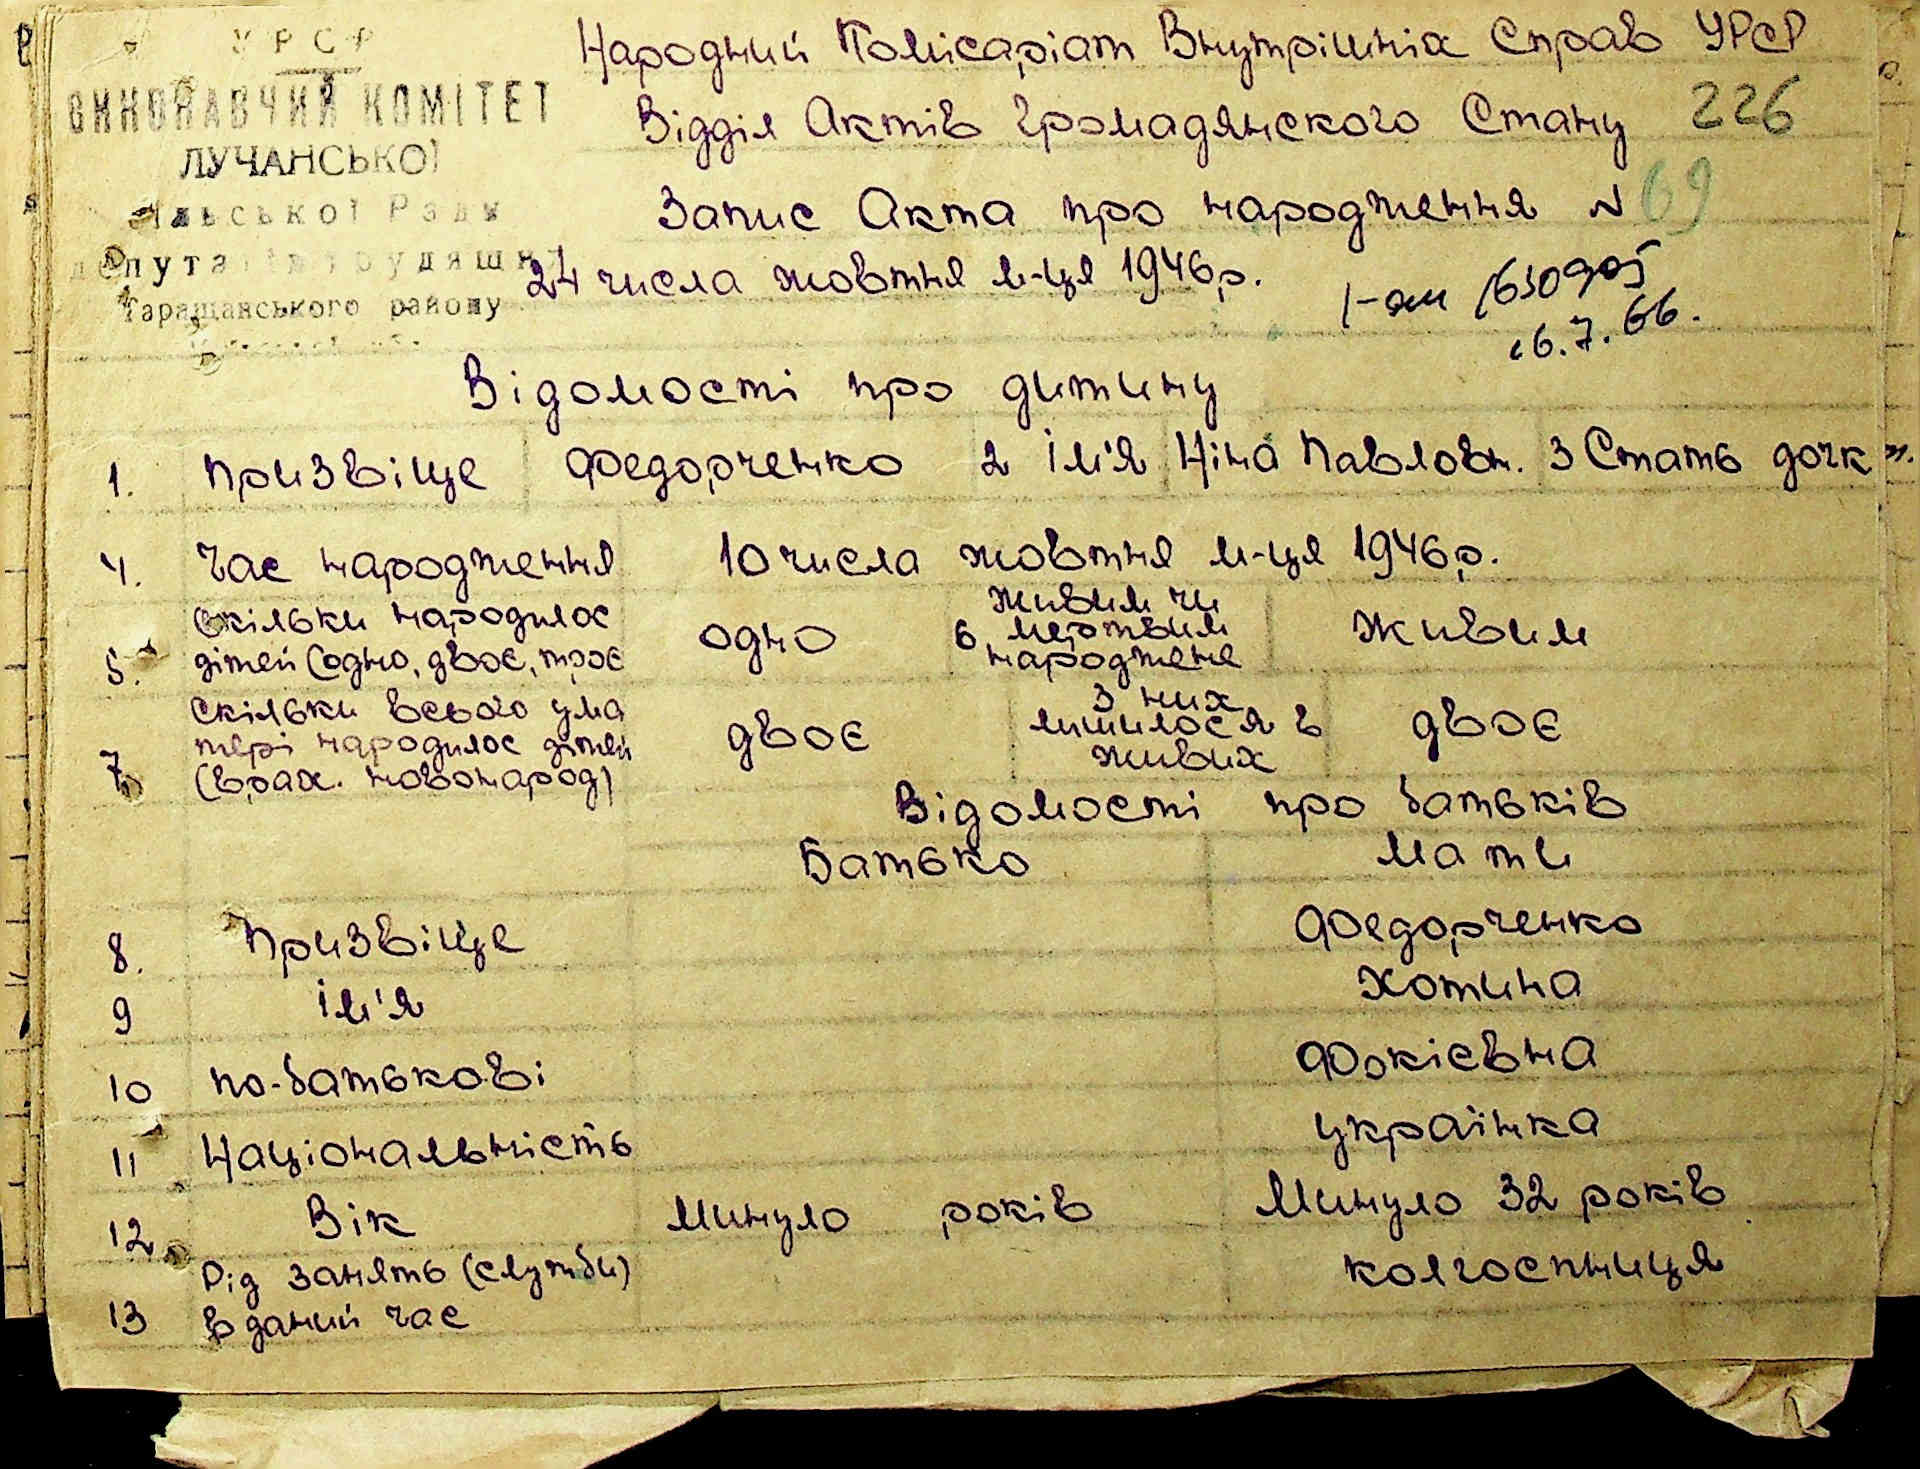 УРСР
ВИКОНАВЧИЙ КОМІТЕТ
ЛУЧАНСЬКОЇ
сільської Ради
депутатів трудящих
Таращанського району
Народний Комісаріат Внутрішніх Справ УРСР
Відділ Актів Громадянского Стану 226
Запис Акта про народження N 69
24 числа жовтня м-ця 1946р.
16.7.66.
Відомості про дитину
1. Призвіще Федорченко 2 Ім'я Ніна Павловн. 3 Стать дочк
4. Час народження 10 числа жовтня м-ця 1946р.
5. Скільки народилос дітей (одно, двоє, троє одно 6. живим чи мертвим народжене живим
7. Скільки всього у матері народилос дітей (врах. новонарод) двоє З них лишилося в живих двоє
Відомості про батьків
Батько Мати
8. Призвіще Федорченко
9 Ім'я Хотина
10 по-батькові Фокієвна
11 Національність українка
12 Вік Минуло років Минуло 32 років
13 Рід занять (служби) в даний час колгоспниця